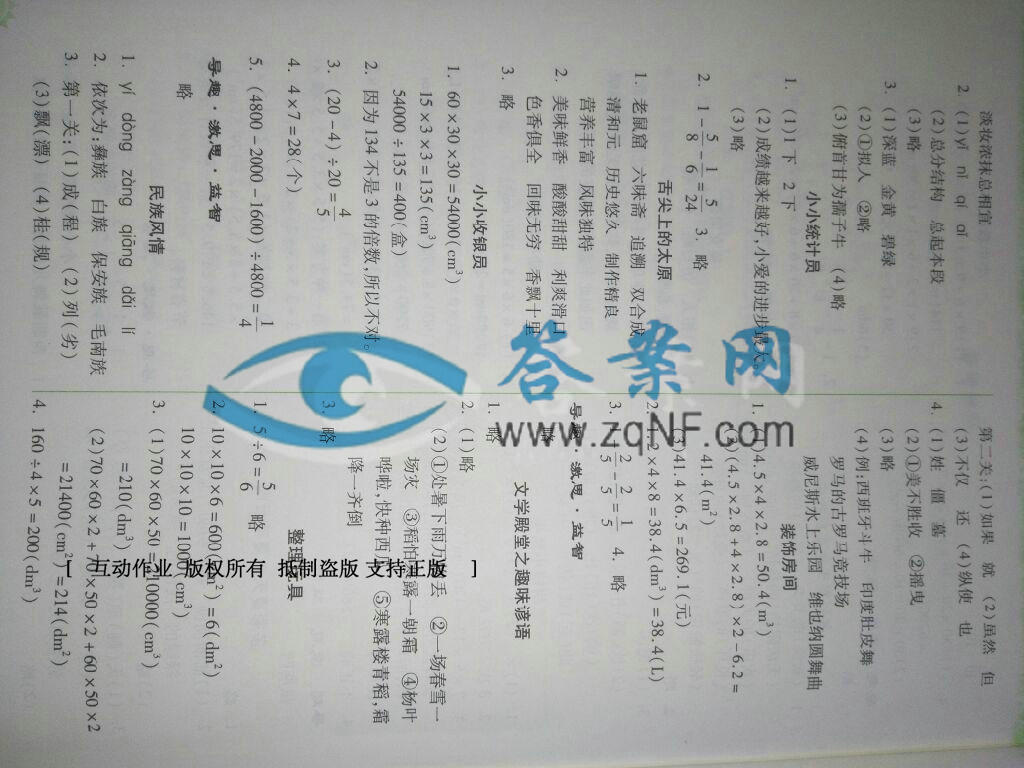 淡妆浓抹总相宜
2. (1)yǐ nǐ qí qī
(2)总分结构 总起本段
(3)略
3. (1)深蓝 金黄 碧绿
(2)①拟人 ②略
(3)俯首甘为孺子牛 (4)略
小小统计员
1. (1)1下 2下
(2)成绩越来越好,小爱的进步最大。
(3)略
2. 1-5/8-1/6=5/24 3. 略
舌尖上的太原
1. 老鼠窟 六味斋 追溯 双合成
清和元 历史悠久 制作精良
营养丰富 风味独特
2. 美味鲜香 酸酸甜甜 利爽滑口
色香俱全 回味无穷 香飘十里
3. 略
小小收银员
1. 60×30×30=54000(cm³)
15×3×3=135(cm³)
54000÷135=400(盒)
2. 因为134不是3的倍数,所以不对。
3. (20-4)÷20=4/5
4. 4×7=28(个)
5. (4800-2000-1600)÷4800=1/4
导趣·激思·益智
略
民族风情
1. yí dòng zàng qiāng dǎi lí
2. 依次为:彝族 白族 保安族 毛南族
3. 第一关:(1)成(程) (2)列(劣)
(3)飘(漂) (4)桂(规)
第二关:(1)如果 就 (2)虽然 但
(3)不仅 还 (4)纵使 也
4. (1)姓 僵 墓
(2)①美不胜收 ②摇曳
(3)略
(4)例:西班牙斗牛 印度肚皮舞
罗马的古罗马竞技场
威尼斯水上乐园 维也纳圆舞曲
装饰房间
1. (1)4.5×4×2.8=50.4(m³)
(2)(4.5×2.8+4×2.8)×2-6.2=
41.4(m²)
(3)41.4×6.5=269.1(元)
2. 1.2×4×8=38.4(dm³)=38.4(L)
3. 2/5 2/5=1/5 4. 略
导趣·激思·益智
略
文学殿堂之趣味谚语
1. 略
2. (1)略
(2)①处暑下雨万 丢 ②一场春雪一
场灾 ③稻怕寒露一朝霜 ④杨叶
哗啦,快种西瓜 ⑤寒露楼青稻,霜
降一齐倒
3. 略
整理玩具
1. 5÷6=5/6 略
2. 10×10×6=600(cm²)=6(dm²)
10×10×10=1000(cm³)
3. (1)70×60×50=210000(cm³)
=210(dm³)
(2)70×60×2+70×50×2+60×50×2
=21400(cm²)=214(dm²)
4. 160÷4×5=200(dm³)
答案网
www.zqNF.com
[ 互动作业 版权所有 抵制盗版 支持正版 ]